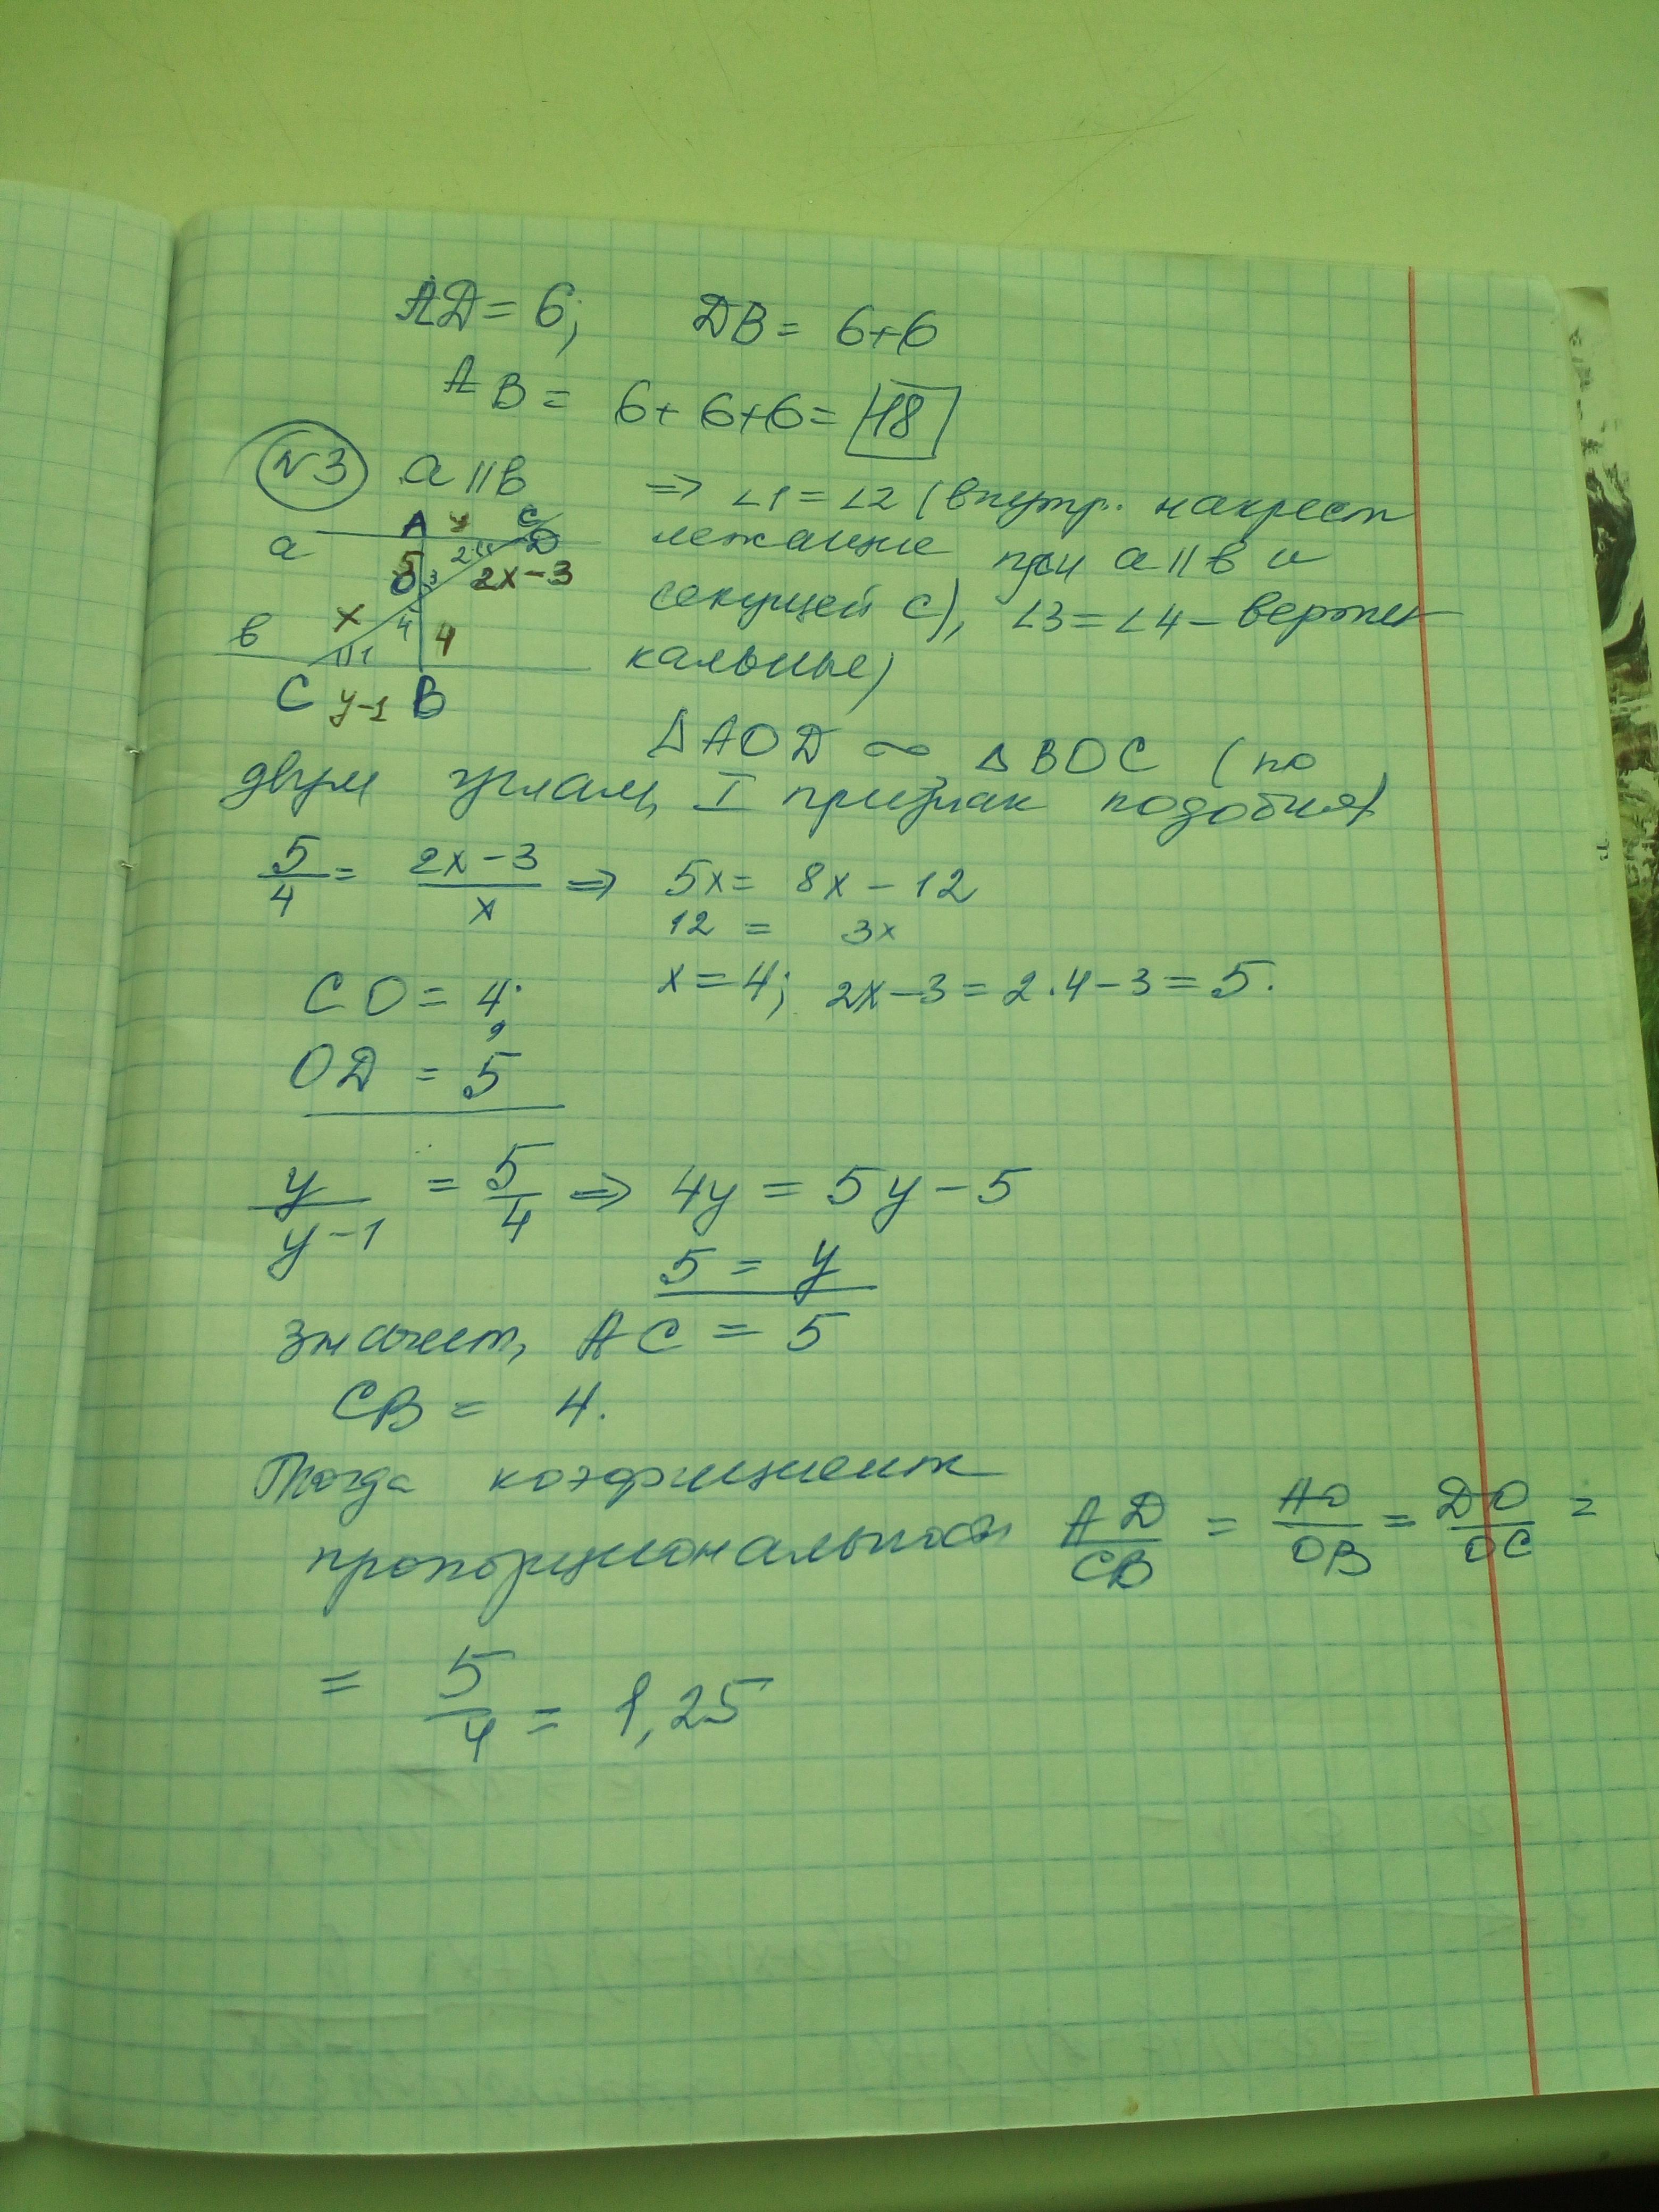 AD = 6; DB = 6+6
AB = 6+6+6 = 18
№3 a || b
⇒ ∠1 = ∠2 (внутр. накрест
лежащие при a || b и
секущей c), ∠3 = ∠4 – верти
кальные)
a A y c D
5 2
O 3 2x-3
x 4 4
b 1
C y-1 B
ΔAOD ∾ ΔBOC (по
двум углам, I признак подобия)
5/4 = (2x-3)/x ⇒ 5x = 8x - 12
12 = 3x
x = 4; 2x-3 = 2·4-3 = 5.
CO = 4;
OD = 5
y/(y-1) = 5/4 ⇒ 4y = 5y-5
5 = y
значит, AC = 5
CB = 4.
Тогда коэфициент
пропорциональности AD/CB = AO/OB = DO/OC =
= 5/4 = 1,25